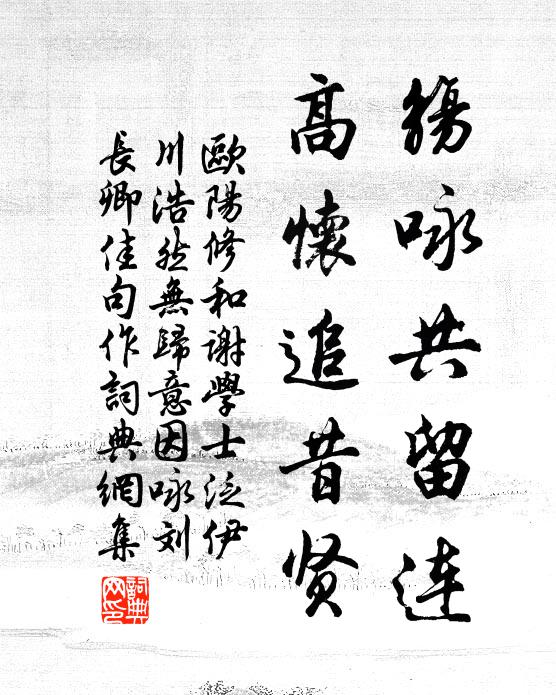 觞咏共留连
高懷追昔贤
歐陽修和谢學士泛伊
川浩然無歸意因咏刘
長卿佳句作詞典網集
詞典
网